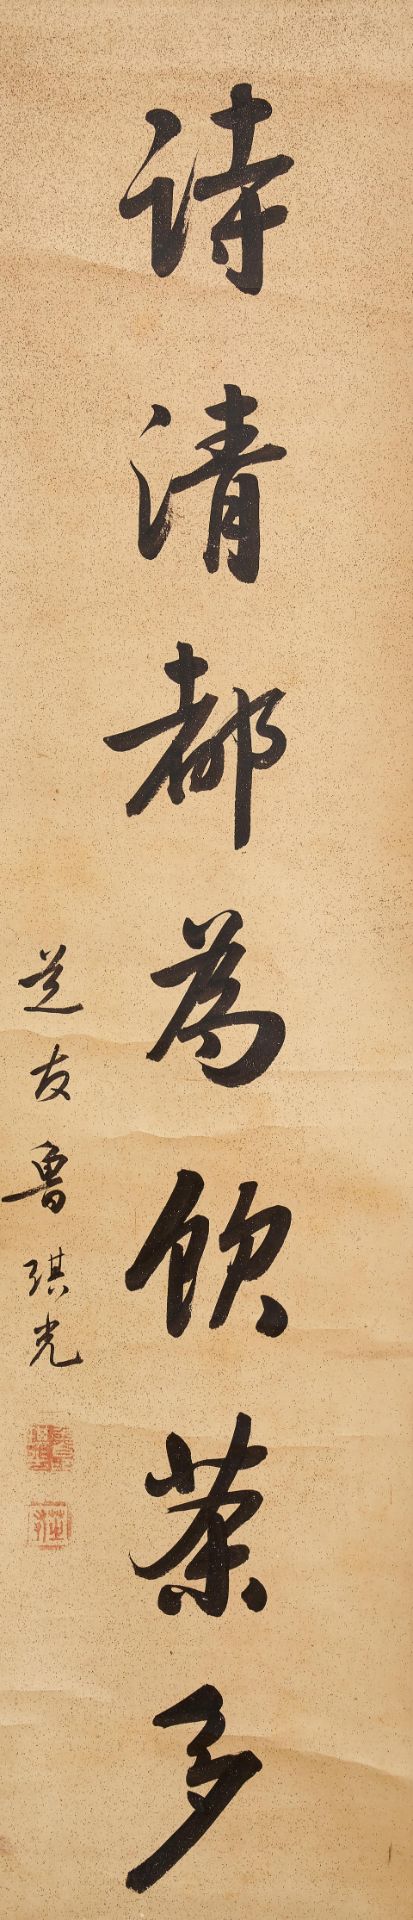 詩清都為飲茶多
芝友魯琪光